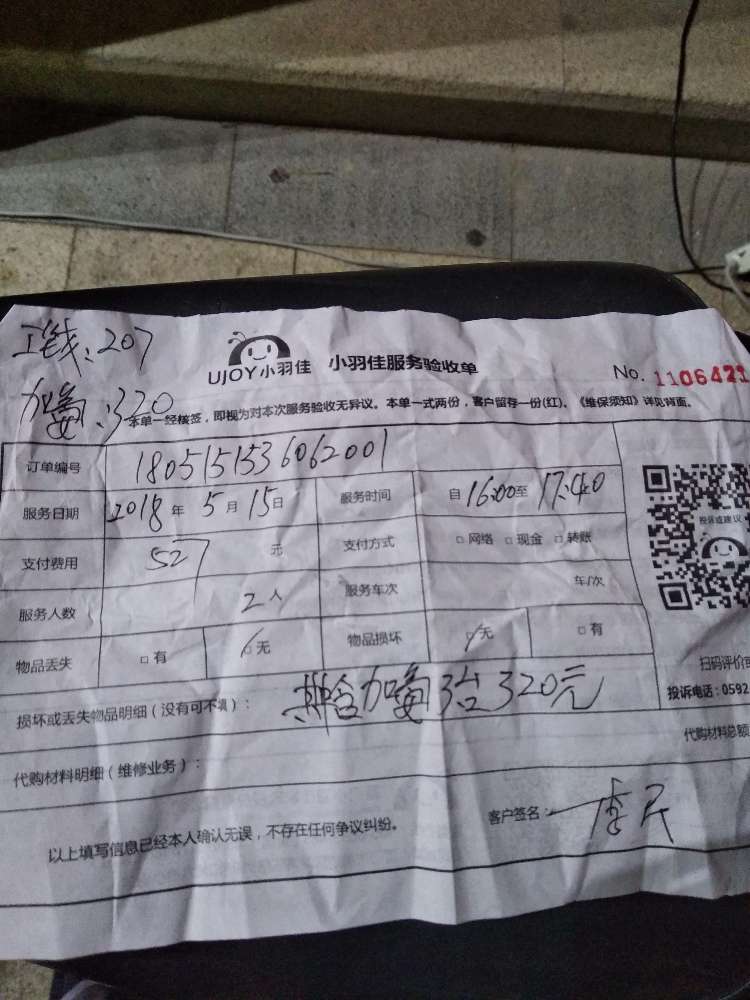 工钱:207
UJOY小羽佳 小羽佳服务验收单
No. 1106421
加氟:320
本单一经核签，即视为对本次服务验收无异议。本单一式两份，客户留存一份(红)。《维保须知》详见背面。
订单编号 1805151536062001
服务日期 2018年5月15日 服务时间 自16:00至17:40
投诉或建议
支付费用 527元 支付方式 □网络 □现金 □转账
服务人数 2人 服务车次 车/次
物品丢失 □有 □无 物品损坏 □无 □有
扫码评价
投诉电话：0592
损坏或丢失物品明细（没有可不填）： 加氟3台320元
代购材料总额
代购材料明细（维修业务）：
以上填写信息已经本人确认无误，不存在任何争议纠纷。
客户签名：